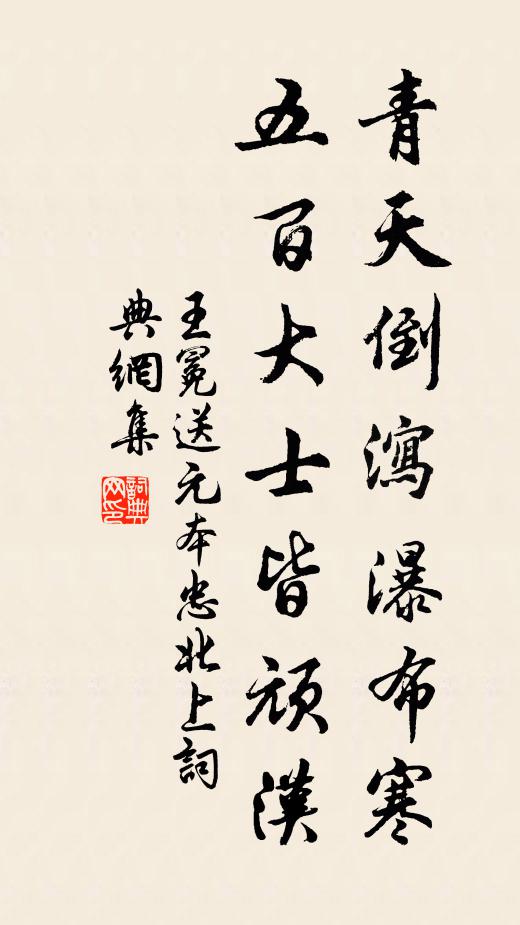 青天倒瀉瀑布寒
五百大士皆頑漢
王冕送元本忠北上詞
典網集
詞典网印